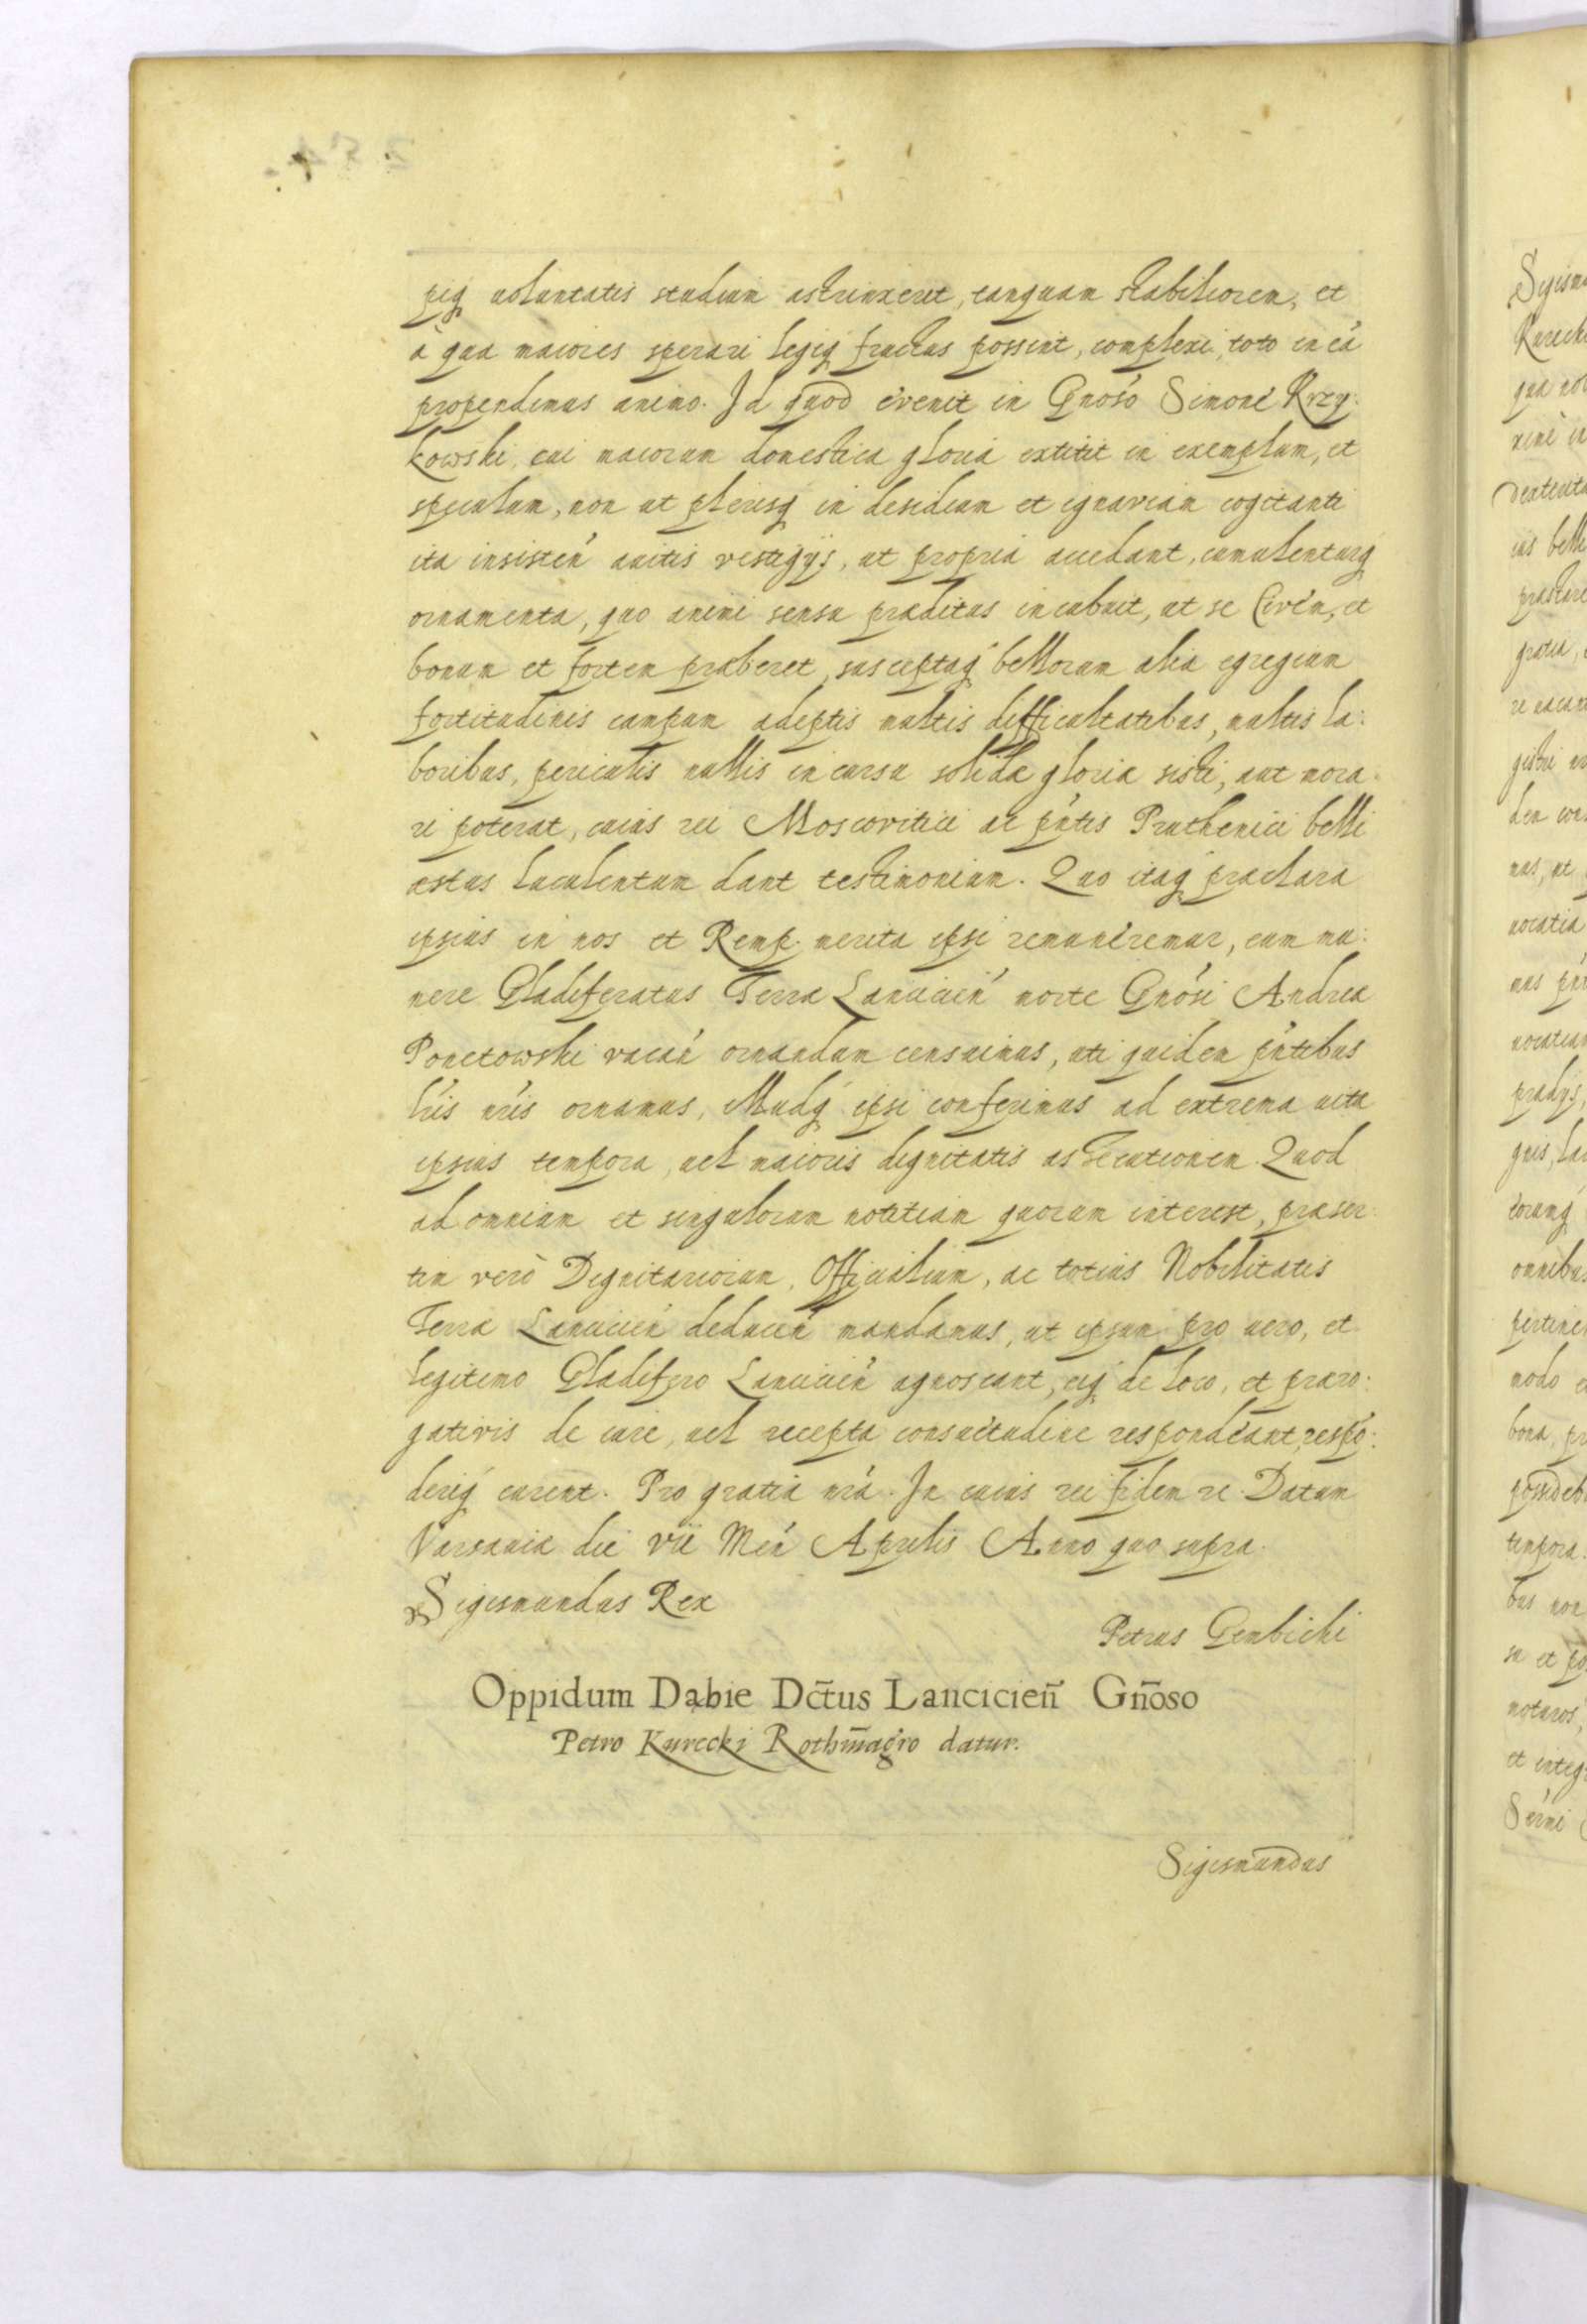 piq voluntatis studium astrinxerit, tanquam stabiliorem, et
à qua maiores sperari legiq fructus possint, complexi, toto in eã
propendimus animo. Id quod evenit in Gnoso Simone Krzy:
kowski, cui maiorum domestica gloria extitit in exemplum, et
speculum, non ut plerisq in desidiam et ignaviam cogitanti
ita insisteñ avitis vestigijs, ut propria accedant, cumulenturq
ornamenta, quo animi sensu præditus incubuit, ut se Civem, et
bonum et fortem præberet, susceptaq bellorum alia egregium
fortitudinis campum adeptis multis difficultatibus, multis la:
boribus, periculis nullis in cursu solidæ gloriæ sisti, aut mora:
ri poterat, cuius rei Moscovitici ac pñtis Pruthenici belli
æstus luculentum dant testimonium. Quo itaq præclara
ipsius in nos et Remp. merita ipsi remuneremur, eum mu:
nere Gladiferatus Terræ Lancicieñ morte Gnosi Andreæ
Ponetowski vacañ ornandum censuimus, uti quidem pñtibus
lris nris ornamus, illudq ipsi conferimus ad extrema vitæ
ipsius tempora, vel maioris dignitatis assecutionem. Quod
ad omnium et singulorum notitiam quorum interest, præser:
tim vero Dignitariorum, Officialium, ac totius Nobilitatis
Terræ Lanciciеñ deduceñ mandamus, ut ipsum pro vero, et
legitimo Gladifero Lanciciеñ agnoscant, eiq de loco, et præro:
gativis de iure, vel recepta consuetudine respondeant, respõ:
deriq curent. Pro gratia nra. In cuius rei fidem re. Datum
Varsaviæ die vii Meñ Aprilis Anno quo supra.
Sigismundus Rex
Petrus Gembicki
Oppidum Dąbie Dc̃tus Lanciciеñ Gñoso
Petro Kurecki Rothm̃agro datur.
Sigismundus